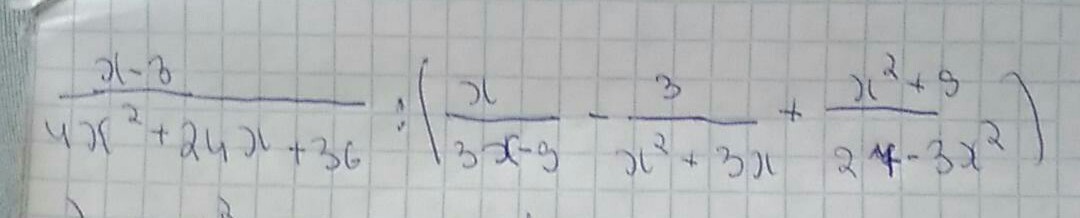 (x-3)/(4x²+24x+36) : (x/(3x-9) - 3/(x²+3x) + (x²+9)/(27-3x²))